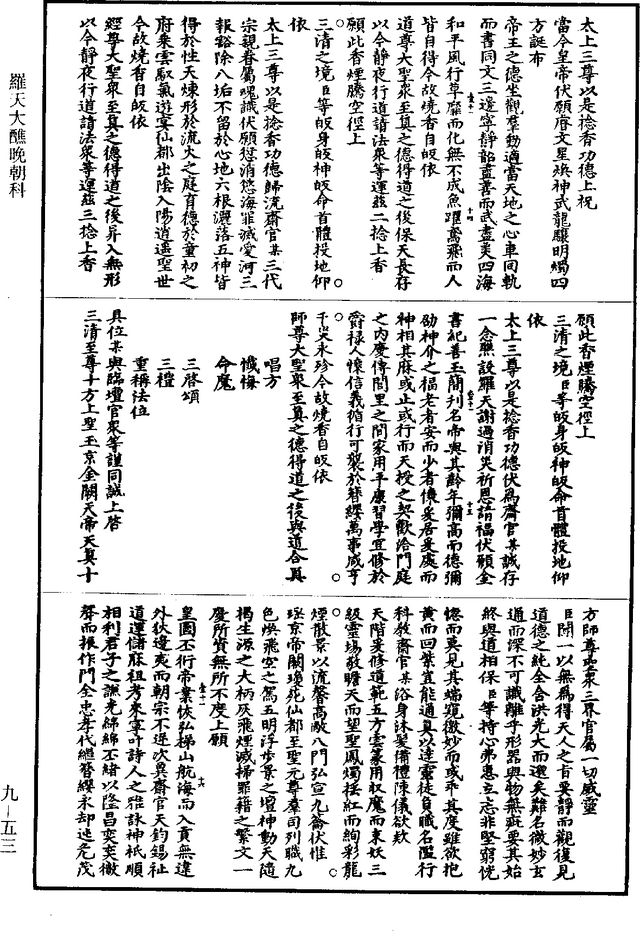 太上三尊以是捻香功德上祝
當今皇帝伏願唐文星煥神武龍驤明燭四
方誕布
帝王之德坐觀羣動適當天地之心車同軌
而書同文三邊寧靜韶盡善而武盡美四海
和平風行草靡而化無不成魚躍鳶飛而人
皆自得今故燒香自皈依
道尊大聖眾至真之德得道之後保天長存
以今靜夜行道請法眾等運茲二捻上香
願此香煙騰空徑上
三清之境臣等皈身皈神皈命首體投地仰
依
太上三尊以是捻香功德歸流齋官某三代
宗親眷屬魂識伏願愆消慾海罪滅愛河三
報豁除八垢不留於心地六根灑落五神皆
得於性天煉形於流火之庭育德於童初之
府乘雲馭氣遊宴仙都出陰入陽逍遥聖世
今故燒香自皈依
經尊大聖眾至真之德得道之後昇入無形
以今靜夜行道請法眾等運茲三捻上香
願此香煙騰空徑上
三清之境臣等皈身皈神皈命首體投地仰
依
太上三尊以是捻香功德伏為齋官某誠存
一念醮設羅天謝過消災祈恩請福伏願金
書紀善玉簡刋名帝與其齡年彌高而德彌
劭神介之福老者安而少者懷爰居爰處而
神相其庥或止或行而天授之契歡洽門庭
之内慶傳閭里之間家用平康習學宜修於
爵禄人懷信義循行可襲於簪纓萬事咸亨
千災永殄今故燒香自皈依
師尊大聖眾至真之德得道之後與道合真
唱方
懺悔
命魔
三啓頌
三禮
重稱法位
具位某與臨壇官眾等謹同誠上啓
三清至尊十方上聖玉京金闕天帝天真十
方師尊聖眾三界官屬一切威靈
臣聞一以無為得天人之旨要靜而觀復見
道德之純全含洪光大而邈矣難名微妙玄
通而深不可識離乎形器與物無疵要其始
終與道相保臣等持心弗惠立志非堅窮恍
惚而莫見其端窺微妙而或乖其度雖欲抱
黄而回紫豈能通真以達靈徒負職名濫行
科教齋官某浴身沐髮備禮陳儀欲款
天階爰修道範五方雲篆用馭魔而束妖三
級靈場敢瞻天而望聖鳳燭搖紅而絢彩龍
煙散景以流馨高敞八門弘宣九籥伏惟
瑤京帝闕瓊苑仙都至聖元尊羣司列職九
色煥飛空之駕五明浮步景之壇神動天隨
揭生源之大柄灰飛煙滅掃罪籍之繁文一
慶所資無所不度上願
皇圖丕衍帝業恢弘梯山航海而入貢無違
外狄邊夷而朝宗不遑次冀齋官天鈞錫祉
道運儲庥祖考來寧叶詩人之雅詠神祇順
相利君子之攸光綿綿丕緒以隆昌奕奕徽
聲而振作門全忠孝代繼簪纓永却迍危茂
羅天大醮晚朝科
九—五三